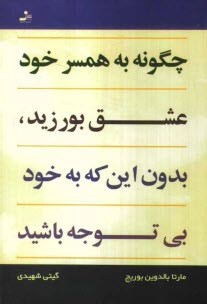 چگونه به همسر خود
عشق بورزید،
بدون این که به خود
بی توجه باشید
مارتا بالدوین بوریج
گیتی شهیدی